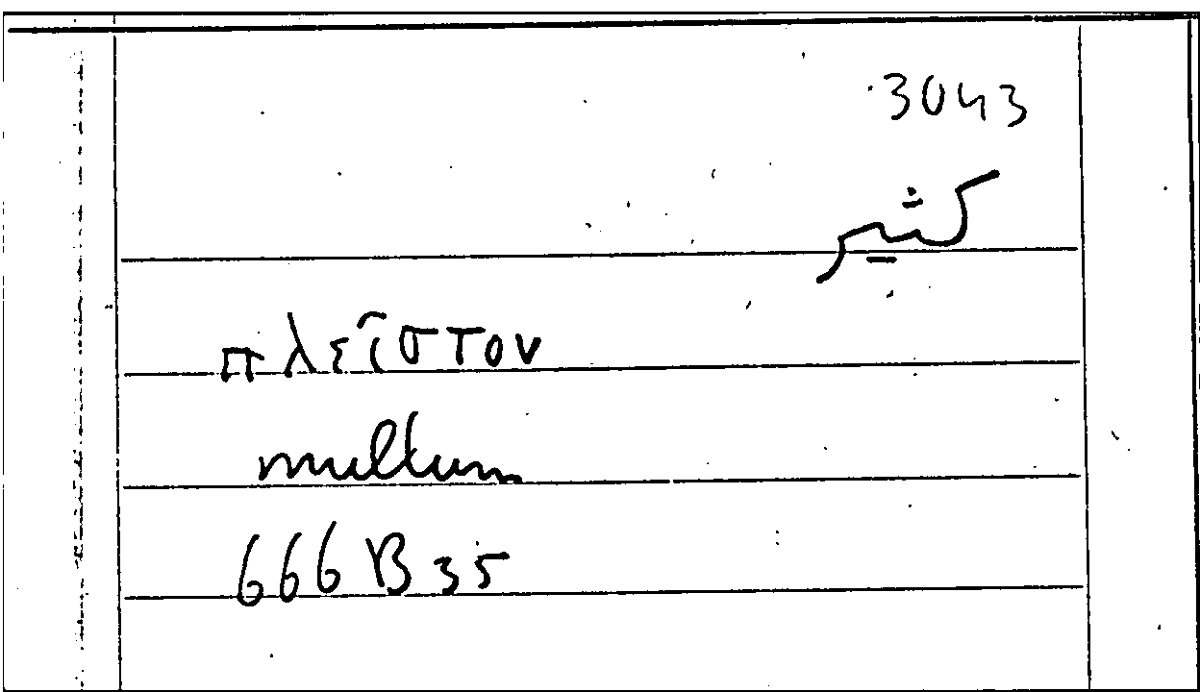 3043
كثير
πλεῖστον
multum
666 B 35